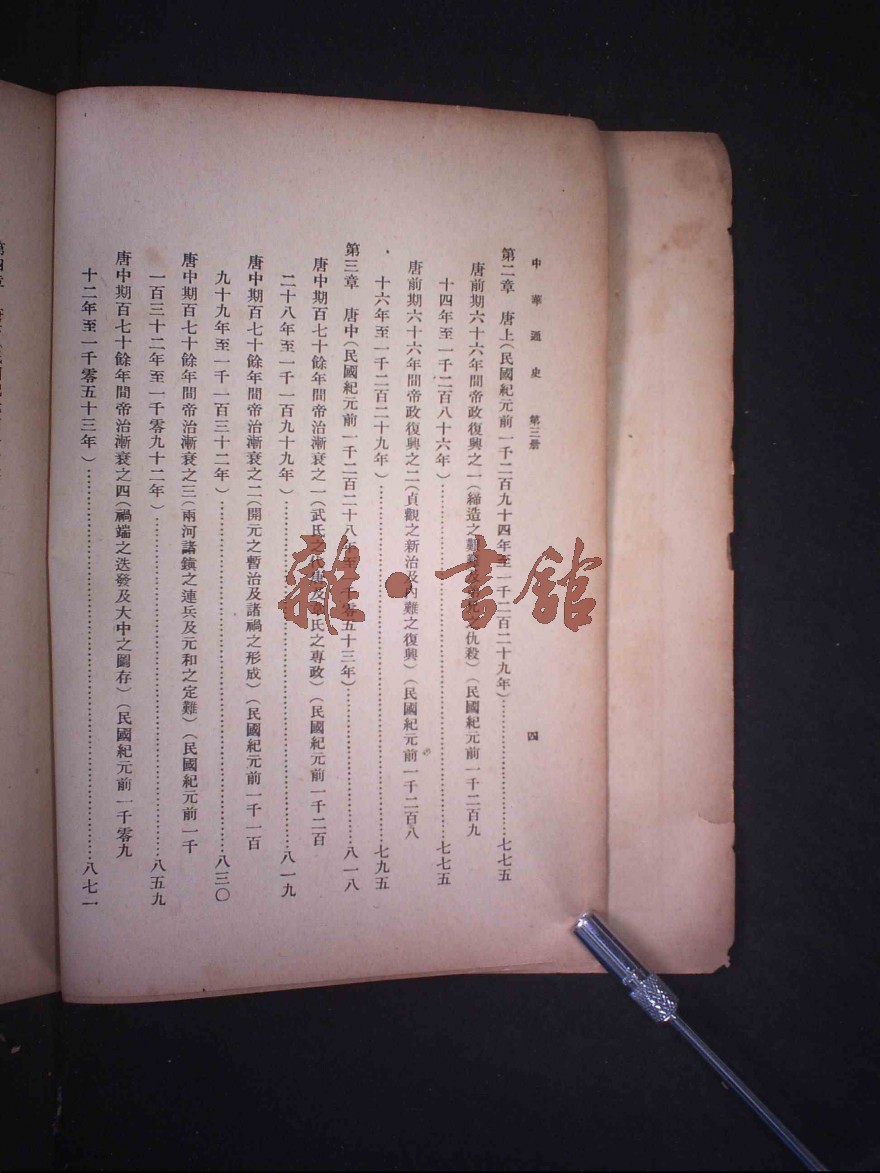 中華通史 第三册 四
第二章 唐上(民國紀元前一千二百九十四年至一千二百二十九年)……七七五
唐前期六十六年間帝政復興之一(締造之難及之仇殺)(民國紀元前一千二百九
十四年至一千二百八十六年)……七七五
唐前期六十六年間帝政復興之二(貞觀之新治及內難之復興)(民國紀元前一千二百八
十六年至一千二百二十九年)……七九五
第三章 唐中(民國紀元前一千二百二十八年至一千零五十三年)……八一八
唐中期百七十餘年間帝治漸衰之一(武氏之代及氏之專政)(民國紀元前一千二百
二十八年至一千一百九十九年)……八一九
唐中期百七十餘年間帝治漸衰之二(開元之暫治及諸禍之形成)(民國紀元前一千一百
九十九年至一千一百三十二年)……八三〇
唐中期百七十餘年間帝治漸衰之三(兩河諸鎮之連兵及元和之定難)(民國紀元前一千
一百三十二年至一千零九十二年)……八五九
唐中期百七十餘年間帝治漸衰之四(禍端之迭發及大中之圖存)(民國紀元前一千零九
十二年至一千零五十三年)……八七一
雜·書館